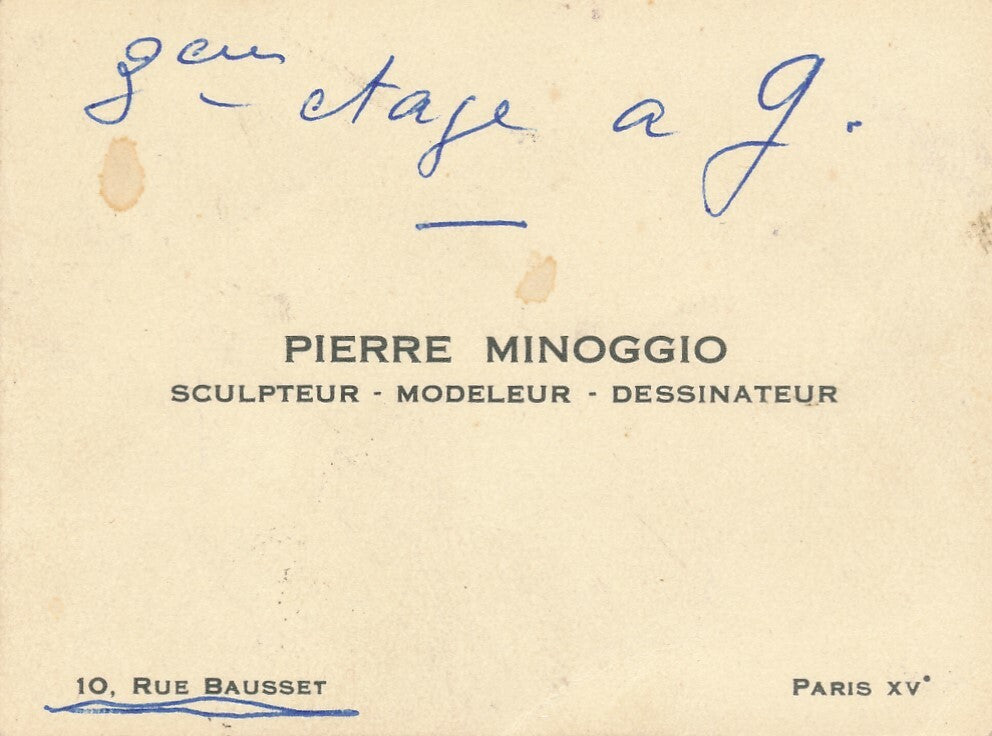 3em etage a g.
PIERRE MINOGGIO
SCULPTEUR - MODELEUR - DESSINATEUR
10, RUE BAUSSET
PARIS XVe